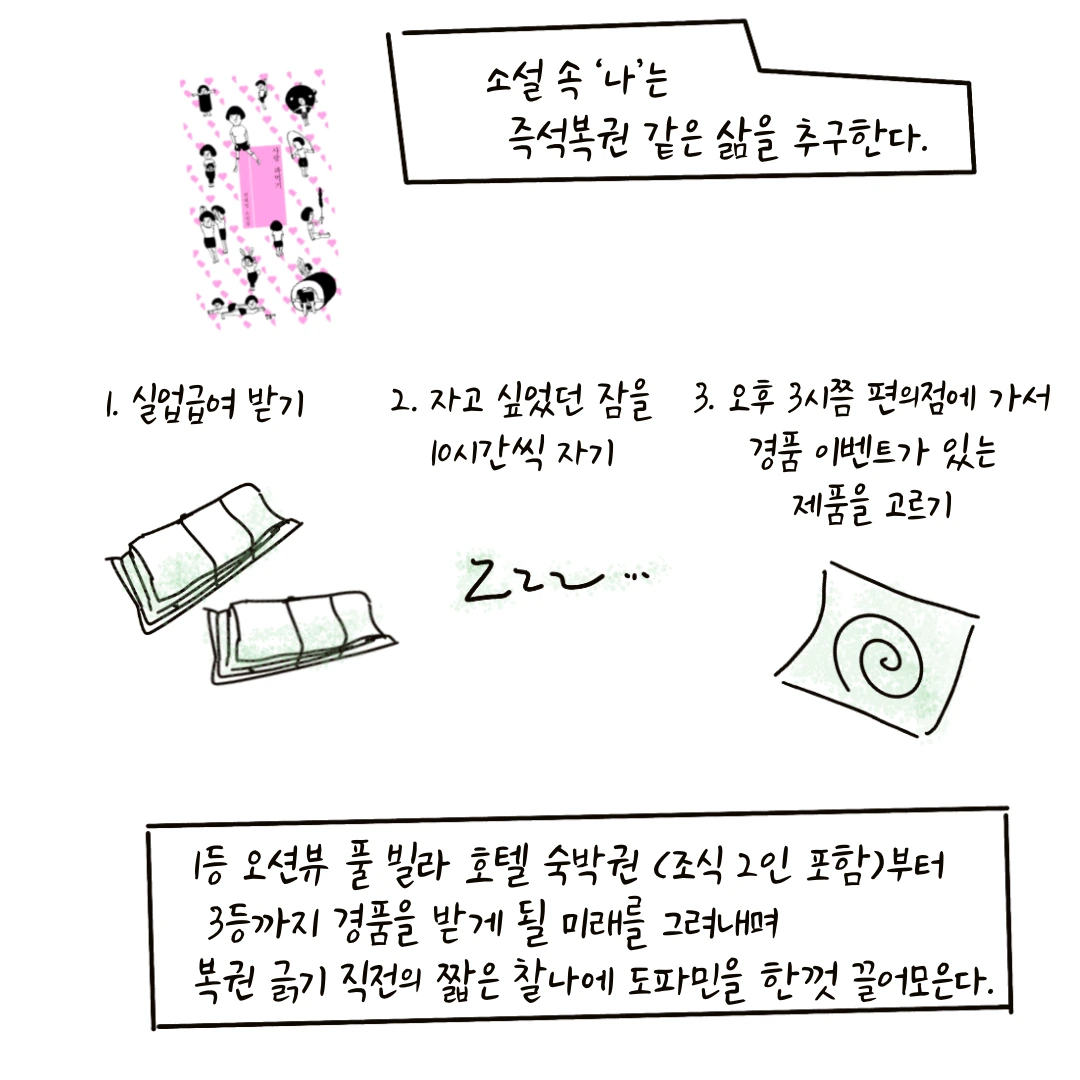 소설 속 ‘나’는
즉석복권 같은 삶을 추구한다.
사랑 파먹기
1. 실업급여 받기
2. 자고 싶었던 잠을
10시간씩 자기
3. 오후 3시쯤 편의점에 가서
경품 이벤트가 있는
제품을 고르기
Zzz~...
1등 오션뷰 풀 빌라 호텔 숙박권 (조식 2인 포함)부터
3등까지 경품을 받게 될 미래를 그려내며
복권 긁기 직전의 짧은 찰나에 도파민을 한껏 끌어모은다.